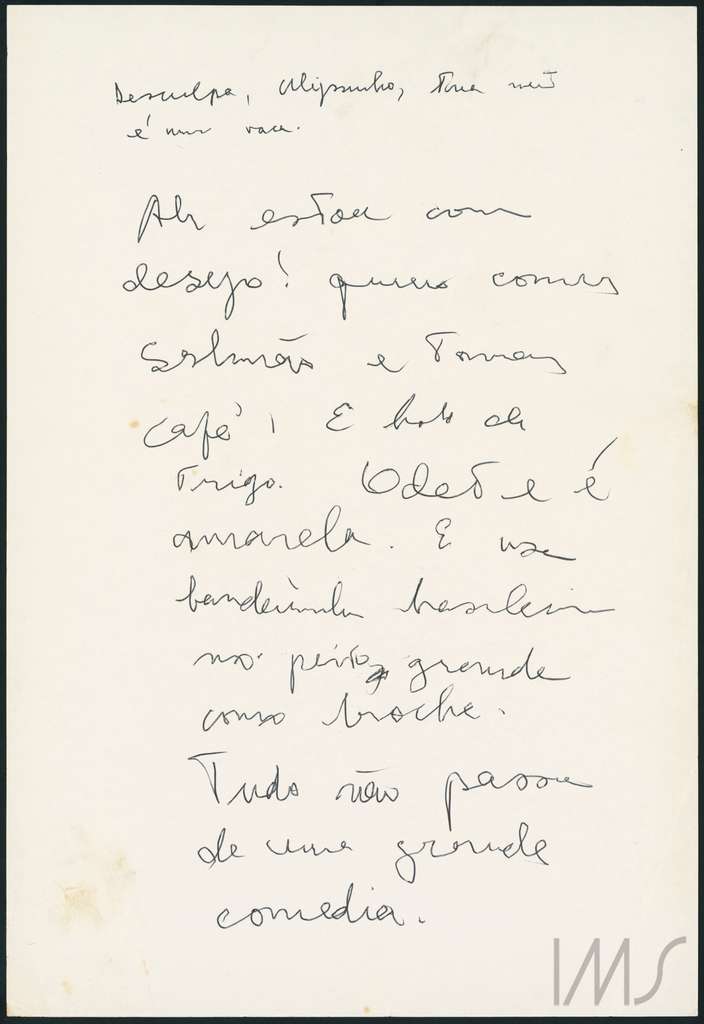 Desculpa, tua
é uma vaca.
Ah estou com
desejo! quero comer
salmão e tomar
café! E bolo de
trigo. Odete é
amarela. E usa
bandeirinha brasileira
no peito grande
como broche.
Tudo não passa
de uma grande
comedia.
IMS